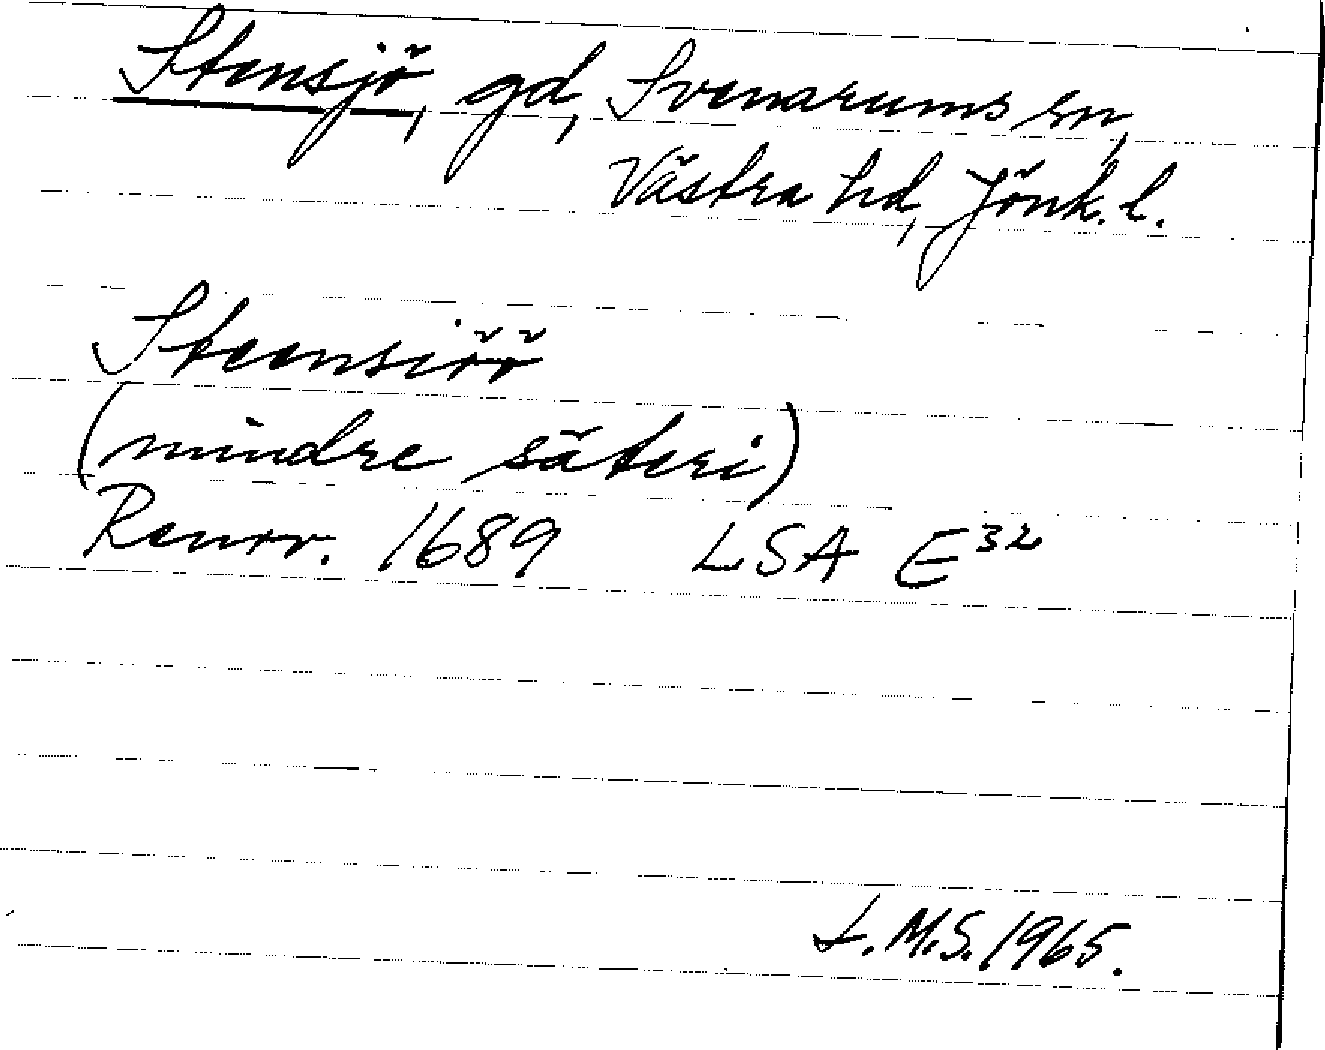 Stensjö, gd, Svenarums sn,
Västra hd, Jönk. l.
Steensiöö
(mindre säteri)
Renov. 1689 LSA E³²
L.M.S. 1965.